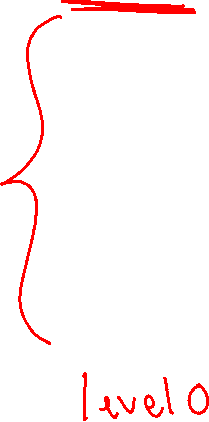 level 0